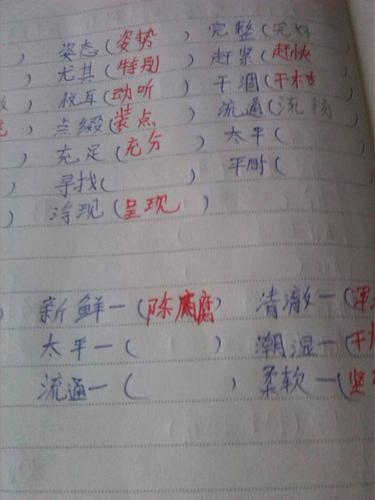 姿态(姿势) 完整(完好
) 尤其(特别) 赶紧(赶快
悦耳(动听) 干涸(干枯
) 点缀(装点) 流通(流畅
) 充足(充分) 太平(
) 寻找( ) 平时(
) 浮现(呈现)
) 新鲜—(陈腐) 清澈—(浑
太平—( ) 潮湿—(干
流通—( ) 柔软—(坚